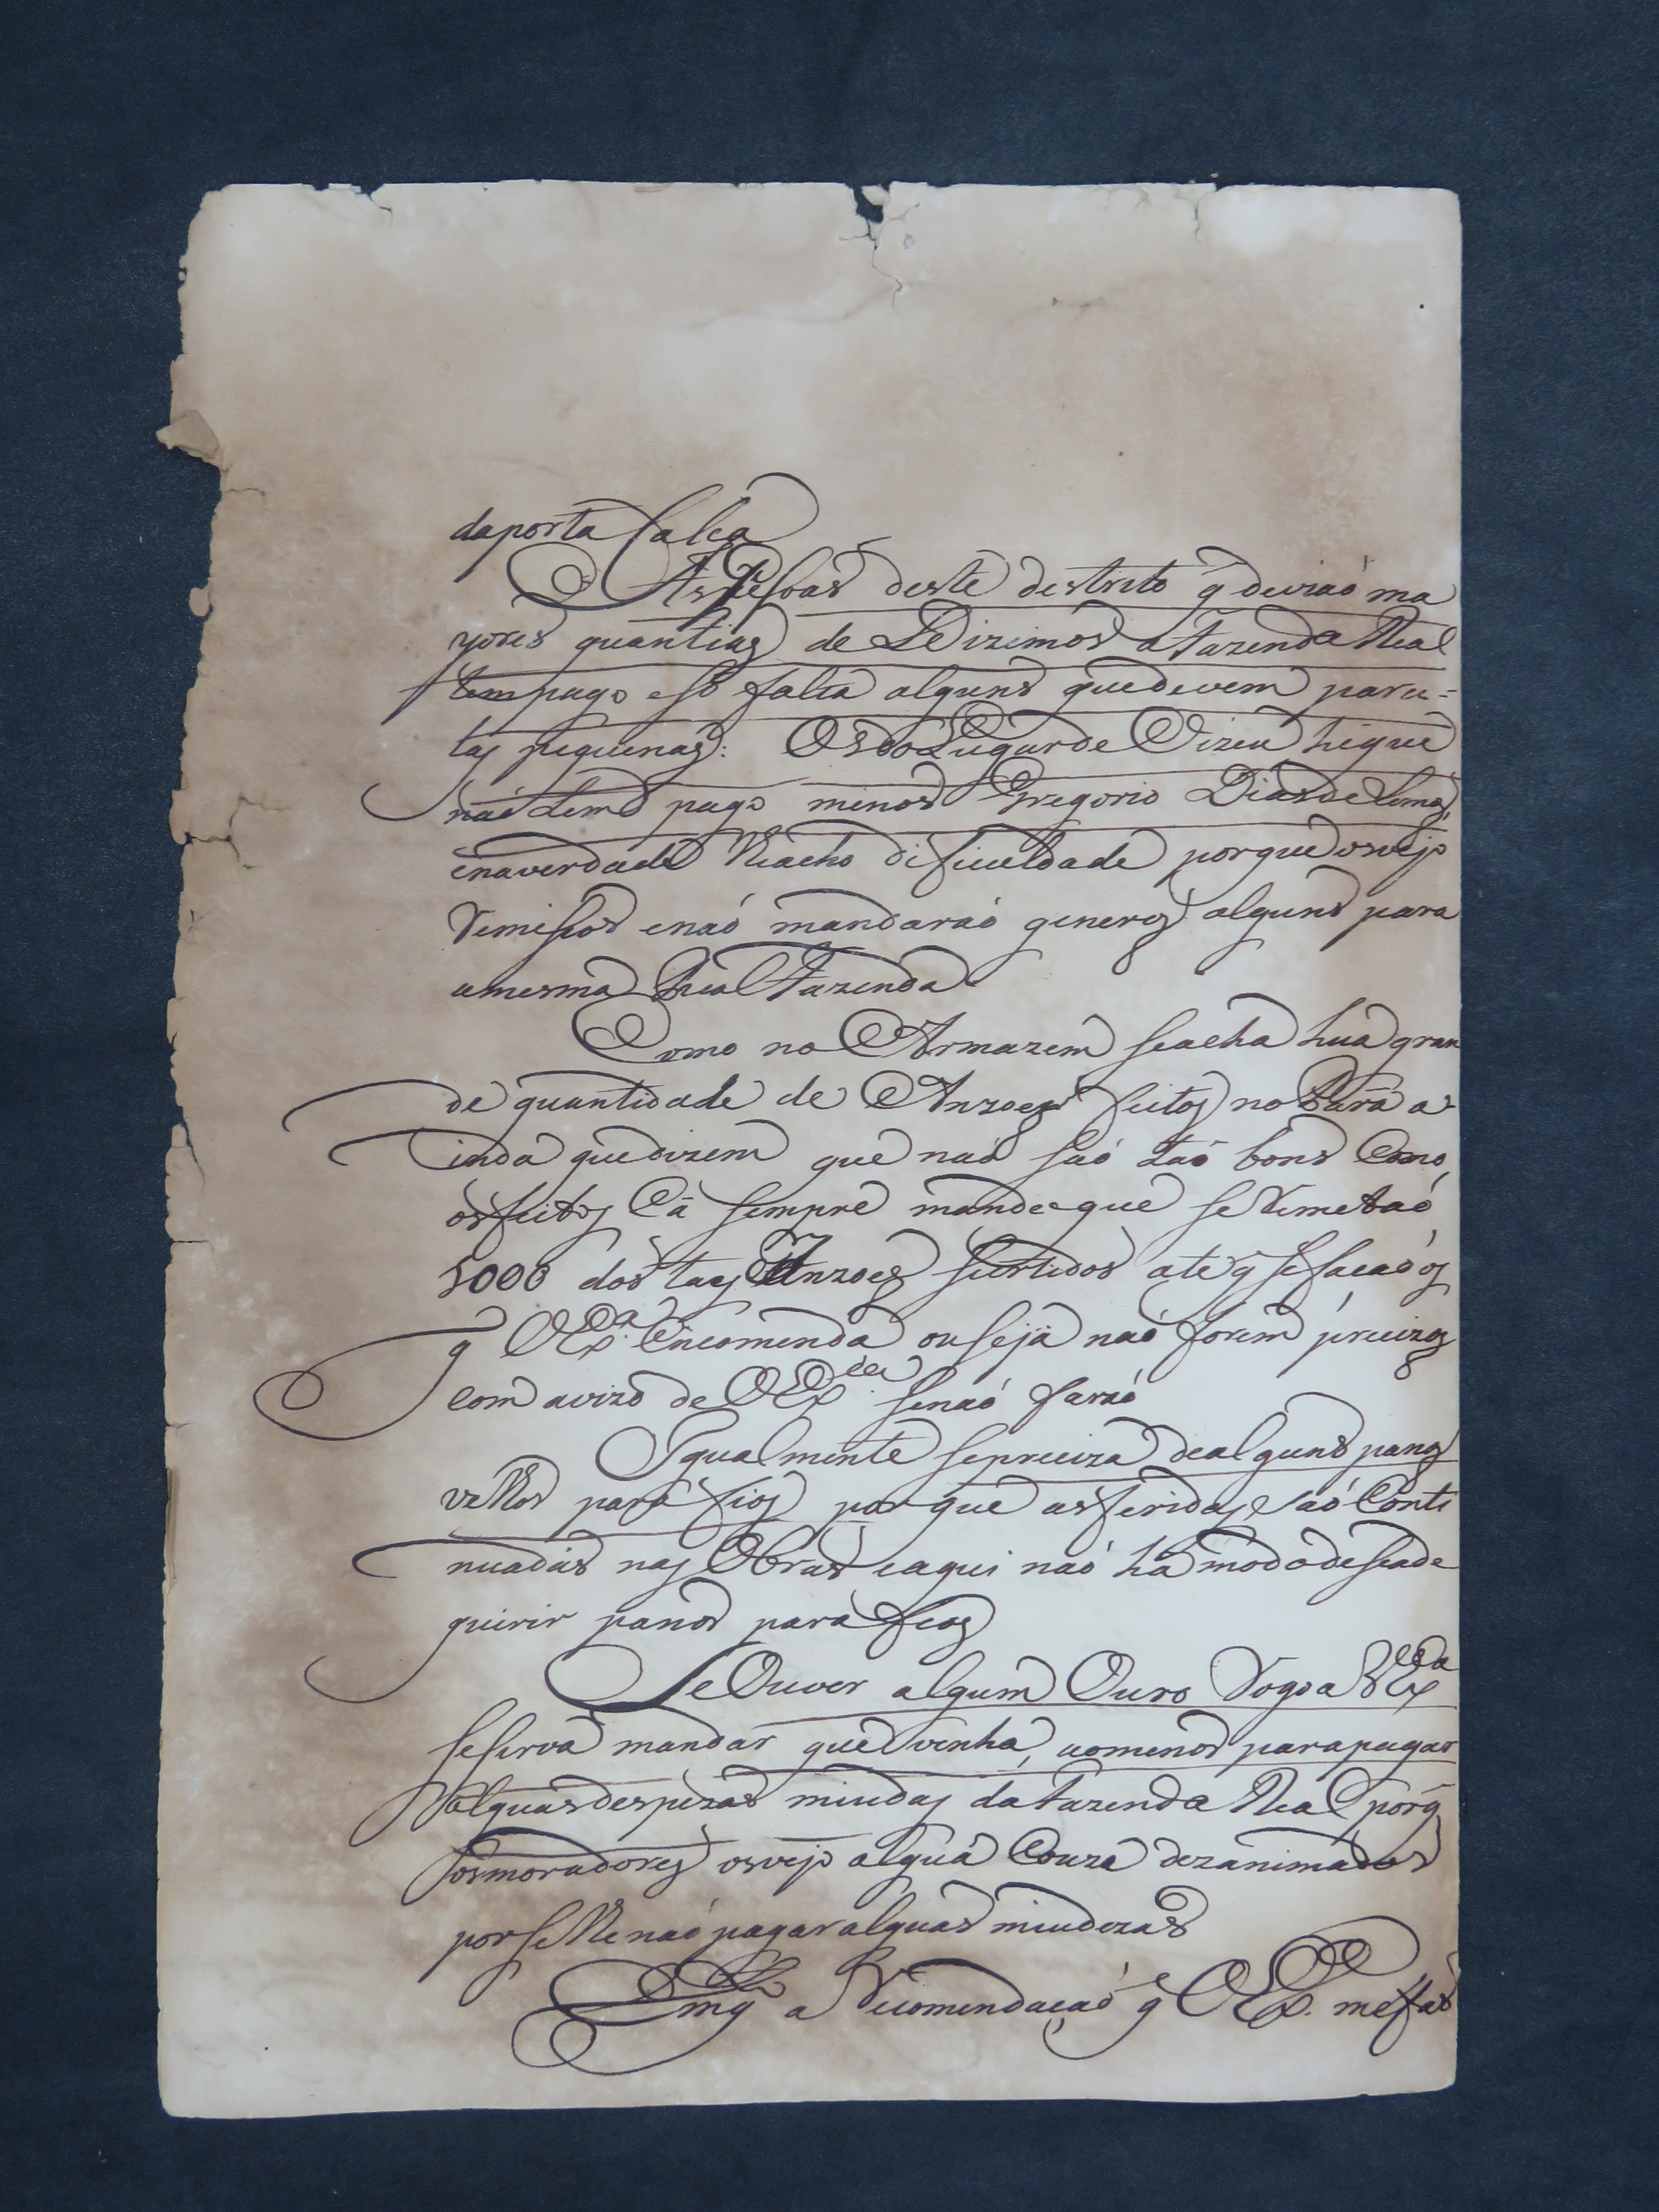 daporta falça
As Pessoas deste destrito q̃ deviaó ma
yores quantias de Dizimos a Fazenda Real
tem pago e só falta alguns que devem parce=
las pequenas: Os do Lugar de Vizeu hé que
naó tem pago menos Gregorio Dias de Lemos,
e na verdade lhe acho dificuldade porque os vejo
remissos e naó mandaraó generos alguns para
a mesma Real Fazenda
Como no Armazem se acha huá gran
de quantidade de Anzoes feitos no Pará a-
inda que dizem que naó saó taó bons como
os feitos Cá sempre mande que se remetaó
5000 dos taes Anzoes surtidos ate q̃ se façaó os
q̃ VEx.ª encomenda ou se já naó forem precizos
com avizo de VEx.cia se naó faraó
Igualmente se preciza de alguns panos
velhos para fios por que as feridas saó Conti
nuadas nas Obras e aqui naó há modo de se ade
quirir panos para fios
Se Ouver algum Ouro rogo a VEx.cia
se sirva mandar que venha, ao menos para pagar
alguas despezas miudas da Fazenda Real porq̃
os moradores os vejo alguá Couza dezanimados
por se lhe naó pagar alguas miudezas
a recomendaçaó q̃ VEx. me faz